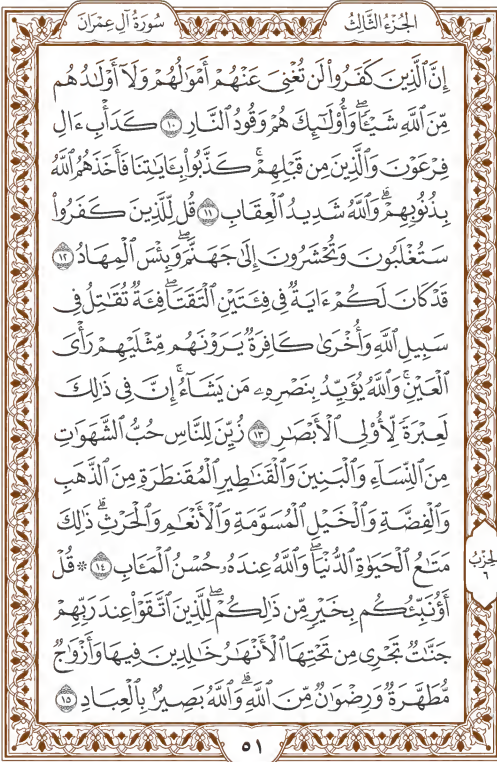 سُورَةُ آلِ عِمْرَانَ
الجُزْءُ الثَّالِثُ
إِنَّ ٱلَّذِينَ كَفَرُوا۟ لَن تُغْنِىَ عَنْهُمْ أَمْوَٰلُهُمْ وَلَآ أَوْلَـٰدُهُم
مِّنَ ٱللَّهِ شَيْـًٔا ۖ وَأُو۟لَـٰٓئِكَ هُمْ وَقُودُ ٱلنَّارِ ١٠ كَدَأْبِ ءَالِ
فِرْعَوْنَ وَٱلَّذِينَ مِن قَبْلِهِمْ ۚ كَذَّبُوا۟ بِـَٔايَـٰتِنَا فَأَخَذَهُمُ ٱللَّهُ
بِذُنُوبِهِمْ ۗ وَٱللَّهُ شَدِيدُ ٱلْعِقَابِ ١١ قُل لِّلَّذِينَ كَفَرُوا۟
سَتُغْلَبُونَ وَتُحْشَرُونَ إِلَىٰ جَهَنَّمَ ۖ وَبِئْسَ ٱلْمِهَادُ ١٢
قَدْ كَانَ لَكُمْ ءَايَةٌ فِى فِئَتَيْنِ ٱلْتَقَتَا ۖ فِئَةٌ تُقَـٰتِلُ فِى
سَبِيلِ ٱللَّهِ وَأُخْرَىٰ كَافِرَةٌ يَرَوْنَهُم مِّثْلَيْهِمْ رَأْىَ
ٱلْعَيْنِ ۚ وَٱللَّهُ يُؤَيِّدُ بِنَصْرِهِۦ مَن يَشَآءُ ۗ إِنَّ فِى ذَٰلِكَ
لَعِبْرَةً لِّأُو۟لِى ٱلْأَبْصَـٰرِ ١٣ زُيِّنَ لِلنَّاسِ حُبُّ ٱلشَّهَوَٰتِ
مِنَ ٱلنِّسَآءِ وَٱلْبَنِينَ وَٱلْقَنَـٰطِيرِ ٱلْمُقَنطَرَةِ مِنَ ٱلذَّهَبِ
وَٱلْفِضَّةِ وَٱلْخَيْلِ ٱلْمُسَوَّمَةِ وَٱلْأَنْعَـٰمِ وَٱلْحَرْثِ ۗ ذَٰلِكَ
مَتَـٰعُ ٱلْحَيَوٰةِ ٱلدُّنْيَا ۖ وَٱللَّهُ عِندَهُۥ حُسْنُ ٱلْمَـَٔابِ ١٤ ۞ قُلْ
أَؤُنَبِّئُكُم بِخَيْرٍ مِّن ذَٰلِكُمْ ۚ لِلَّذِينَ ٱتَّقَوْا۟ عِندَ رَبِّهِمْ
جَنَّـٰتٌ تَجْرِى مِن تَحْتِهَا ٱلْأَنْهَـٰرُ خَـٰلِدِينَ فِيهَا وَأَزْوَٰجٌ
مُّطَهَّرَةٌ وَرِضْوَٰنٌ مِّنَ ٱللَّهِ ۗ وَٱللَّهُ بَصِيرٌۢ بِٱلْعِبَادِ ١٥
الحِزْبُ
٦
٥١